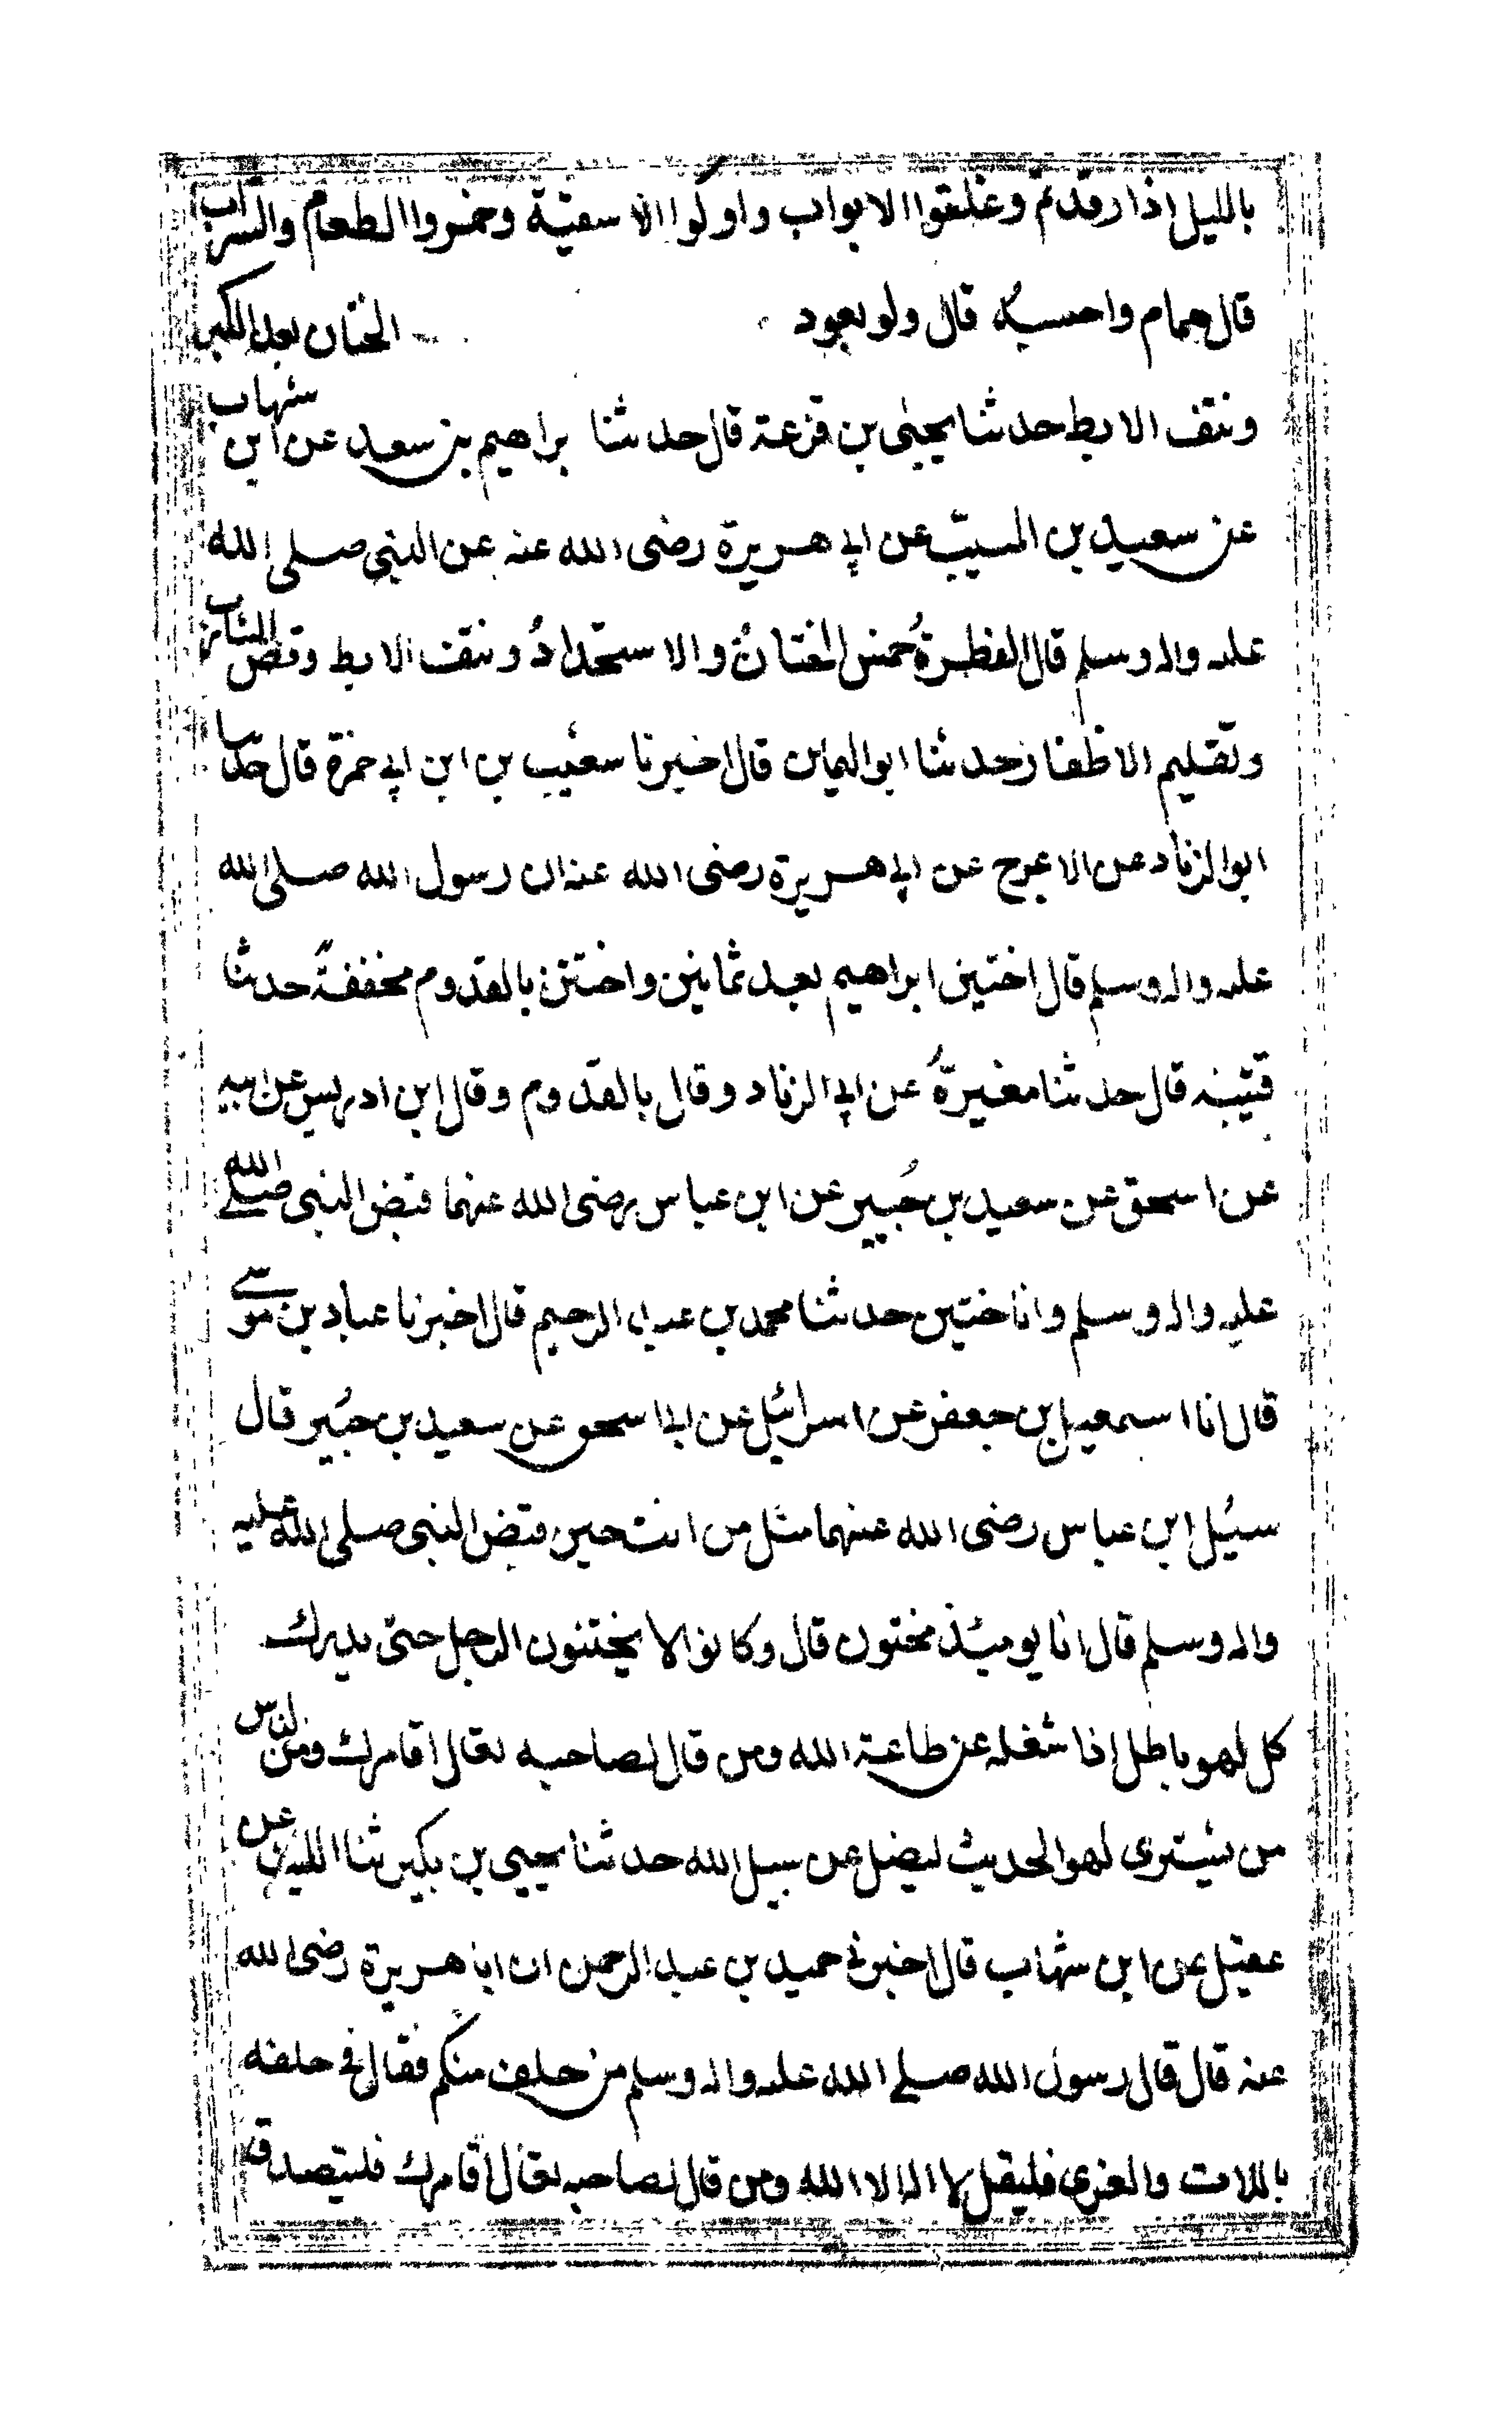 بالليل اذا رقدتم وغلقوا الابواب واوكوا الاسقية وخمروا الطعام والشراب
قال همام واحسبه قال ولو بعود الختان بعد الكبر
ونتف الابط حدثنا يحيى بن قزعة قال حدثنا براهيم بن سعد عن ابن شهاب
عن سعيد بن المسيّب عن ابي هريرة رضى الله عنه عن النبي صلى الله
عليه واله وسلم قال الفطرةُ خمس الختانُ والاستحدادُ ونتف الابط وقص الشارب
وتقليم الاظفار حدثنا ابو اليمان قال اخبرنا شعيب بن ابن ابي حمزة قال حدثنا
ابو الزناد عن الاعرج عن ابي هريرة رضى الله عنه ان رسول الله صلى الله
عليه واله وسلم قال اختتن ابراهيم بعد ثمانين واختتن بالقدوم مخففةً حدثنا
قتيبه قال حدثنا مغيرةُ عن ابي الزناد وقال بالقدّوم وقال ابن ادريس عن ابيه
عن اسحق عن سعيد بن جُبير عن ابن عباس رضى الله عنهما قبض النبي صلى الله
عليه واله وسلم وانا ختين حدثنا محمد بن عبد الرحيم قال اخبرنا عباد بن موسى
قال انا اسمعيل بن جعفر عن اسرائيل عن ابي اسحق عن سعيد بن جبُير قال
سيُل ابن عباس رضى الله عنهما مثل من انت حين قبض النبي صلى الله عليه
واله وسلم قال انا يوميئذ مختون قال وكانوا لا يختنون الرجل حتى يدرك
كل لهو باطل اذا شغله عن طاعة الله ومن قال لصاحبه تعال اقامرك ومن الناس
من يشترى لهو الحديث ليضل عن سبيل الله حدثنا يحيى بن بكير ثنا الليث عن
عقيل عن ابن شهاب قال اخبرني حميد بن عبد الرحمن ان ابا هريرة رضى الله
عنه قال قال رسول الله صلى الله عليه واله وسلم من حلف منكم فقال في حلفه
باللات والعزى فليقل لا اله الا الله ومن قال لصاحبه تعال اقامرك فليتصدق